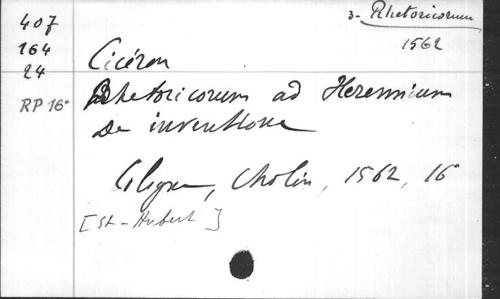 407
164
24
RP 16°
3- Rhetoricorum
1562
Cicéron
Rhetoricorum ad Herennium
De inventione
Cologne, Cholin, 1562, 16°
[St-Hubert]